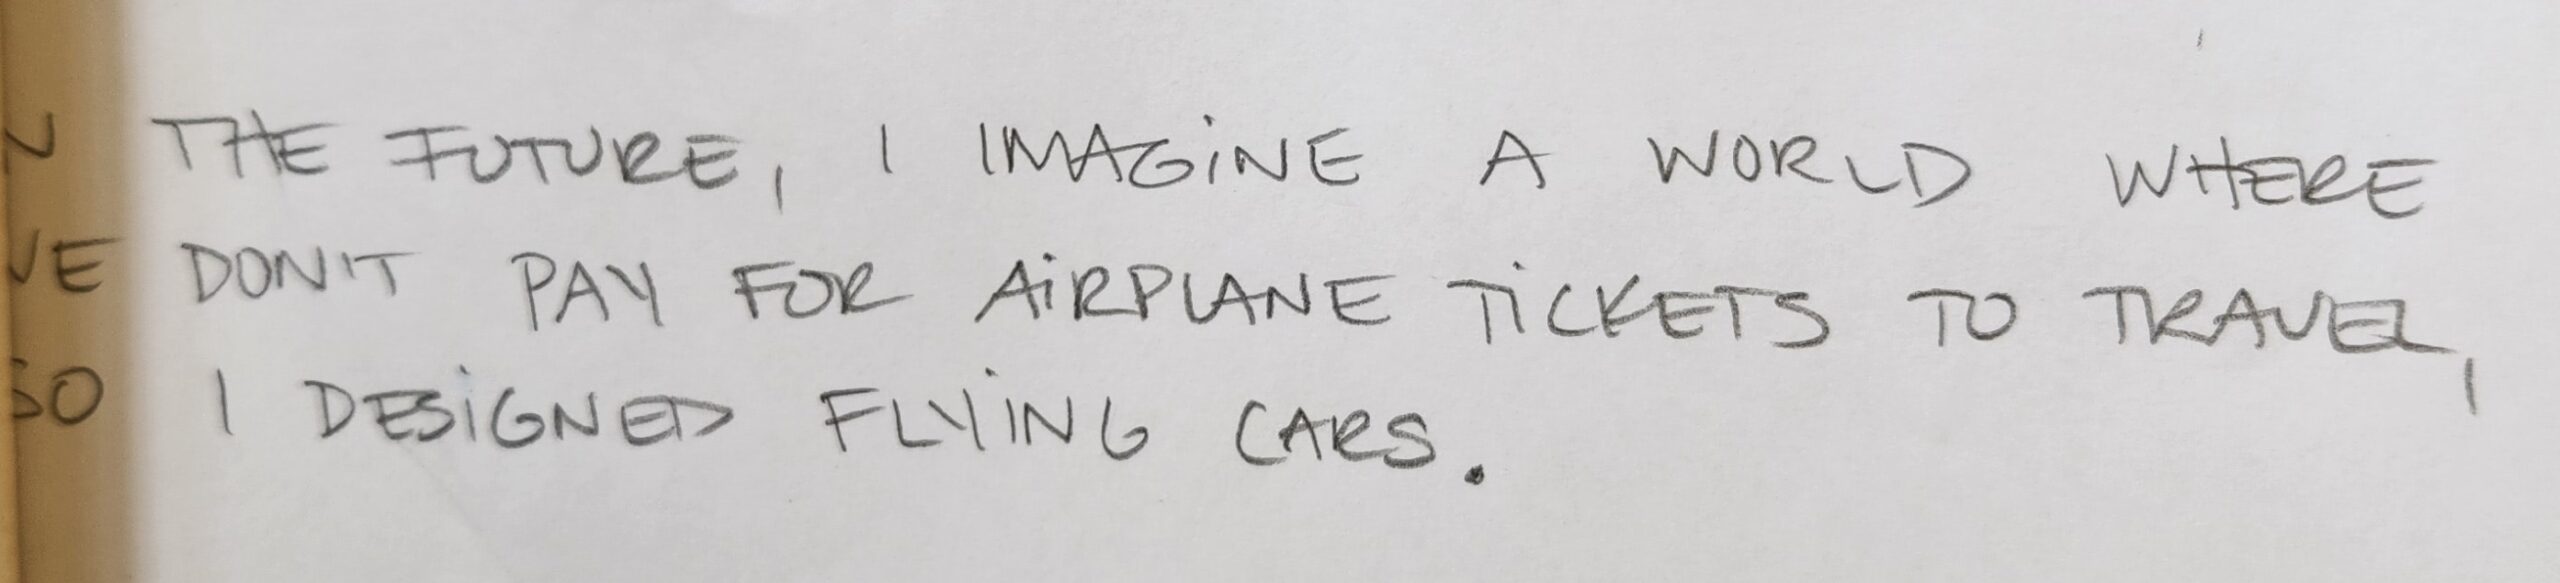 N THE FUTURE, I IMAGINE A WORLD WHERE
WE DON'T PAY FOR AIRPLANE TICKETS TO TRAVEL,
SO I DESIGNED FLYING CARS.